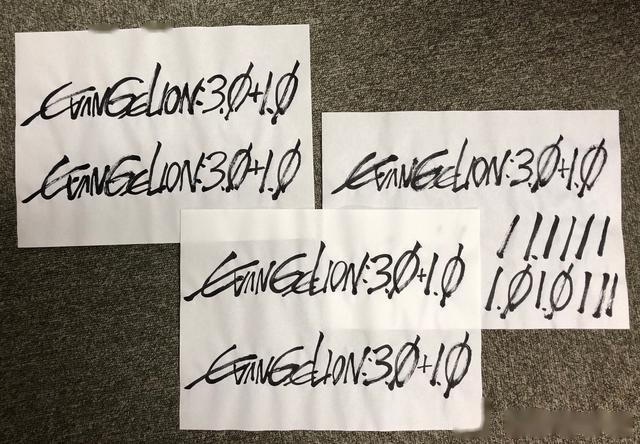 EVANGELION:3.0+1.0
EVANGELION:3.0+1.0
EVANGELION:3.0+1.0
1 1.1 1 1 1
1.0 1.0 1 1 1
EVANGELION:3.0+1.0
EVANGELION:3.0+1.0